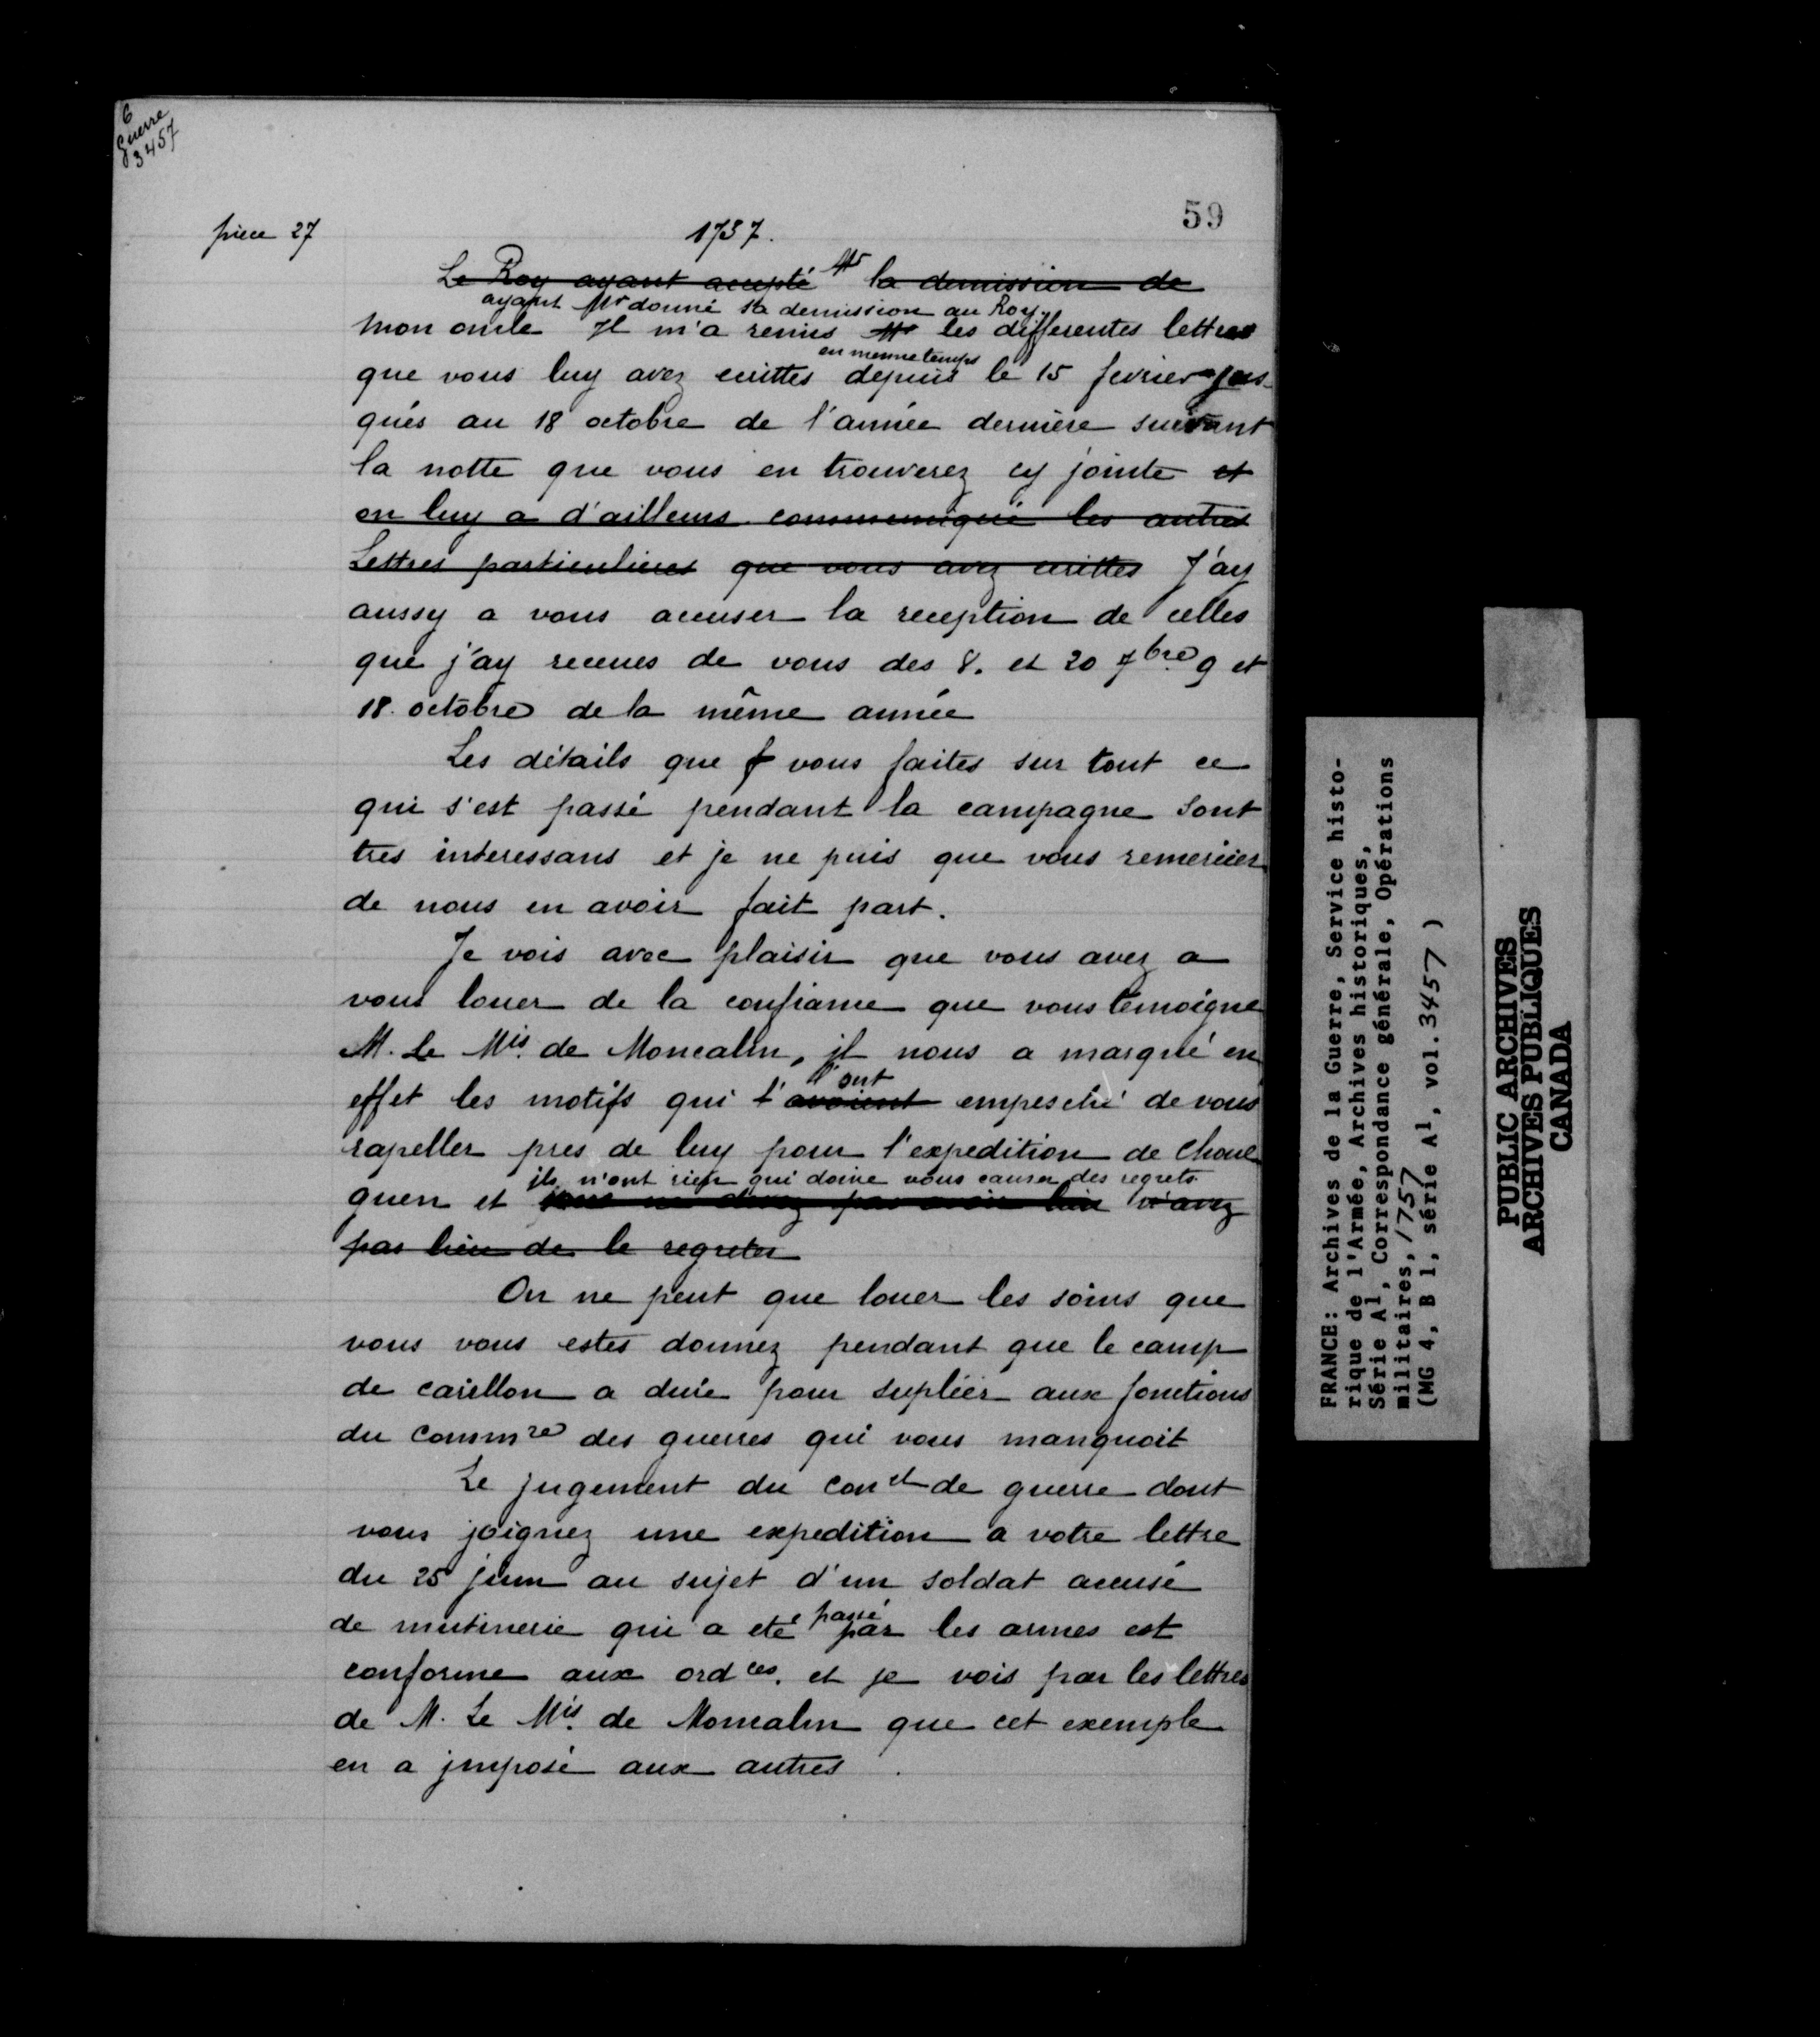 6
Guerre
3457
59
piece 27
1757.
Le Roy ayant accepté Mr la demission de
ayant Mr donné sa demission au Roy.
mon oncle Il m'a remis Mr les differentes lettres
en mesme temps
que vous luy avez ecrittes depuis le 15 fevrier jus-
qués au 18 octobre de l'année dernière suivant
la notte que vous en trouverez cy jointe et
on luy a d'ailleurs communiqué les autres
Lettres particulieres que vous avez ecrittes J'ay
aussy a vous accuser la reception de celles
que j'ay receues de vous des 8. et 20 7bre 9 et
18. octobre de la même année
Les détails que f vous faites sur tout ce
qui s'est passé pendant la campagne sont
tres interessans et je ne puis que vous remercier
de nous en avoir fait part.
Je vois avec plaisir que vous avez a
vous louer de la confiance que vous temoigne
M. Le Mis. de Moncalm, il nous a marqué en
l'ont
effet les motifs qui l'avoient empesché de vous
rapeller pres de luy pour l'expedition de Choue
ils n'ont rien qui doive vous causer des regrets
guen et vous ne devez pas avoir lieu n'avez
pas lieu de le regreter
On ne peut que louer les soins que
vous vous estes donnez pendant que le camp
de carillon a duré pour supléer aux fonctions
du Commre des guerres qui vous manquoit
Le jugement du conel de guerre dont
vous joignez une expedition a votre lettre
du 25 juin au sujet d'un soldat accusé
passé
de mutinerie qui a eté par les armes est
conforme aux ordces. et je vois par les lettres
de M. Le Mis. de Moncalm que cet exemple
en a jmposé aux autres .
FRANCE: Archives de la Guerre, Service histo-
rique de l'Armée, Archives historiques,
Série A1, Correspondance générale, Opérations
militaires, 1757
(MG 4, B 1, série A1, vol. 3457 )
PUBLIC ARCHIVES
ARCHIVES PUBLIQUES
CANADA